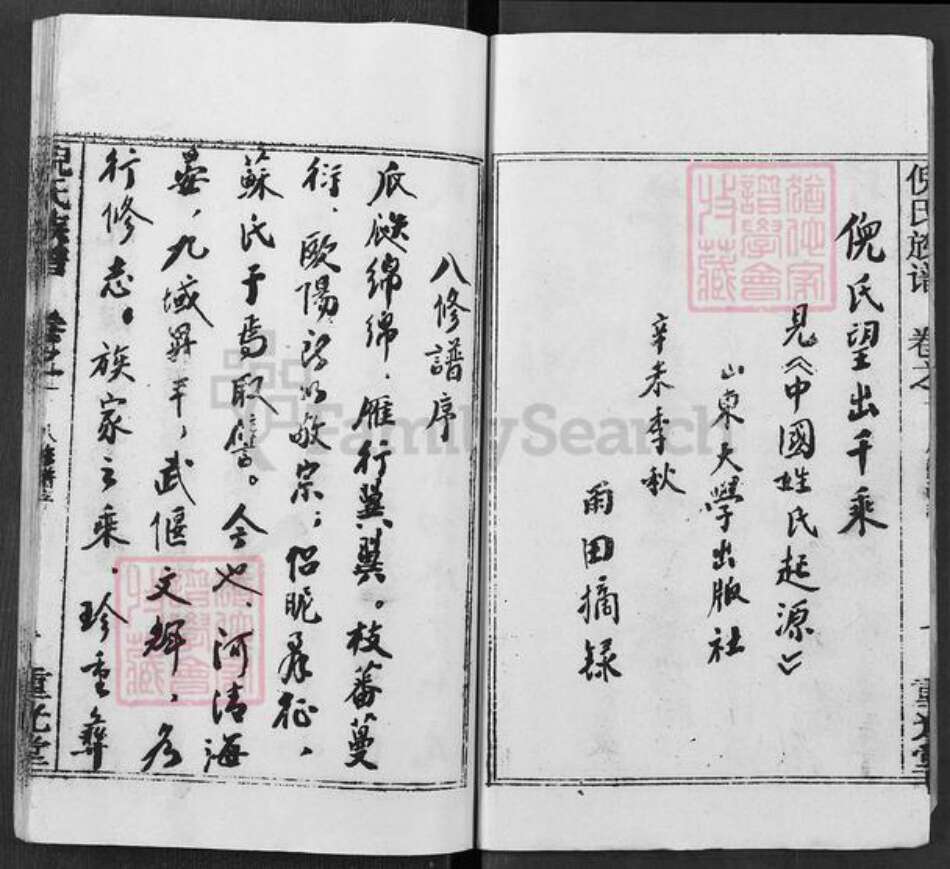 倪氏族谱 卷之
重光堂
倪氏望出千乘
見《中國姓氏起源》
山東大學出版社
辛未季秋
雨田摘録
八修譜序
瓜瓞綿綿，雁行翼翼。枝蕃蔓
衍，歐陽 敬宗；侶昵 征，
蘇氏于焉取 。今也，河清海
晏，九域昇平，武偃文輝，
行修志。族家之乘，珍重彝
倪氏族譜 卷之 八修譜序
重光堂
譜學會
收藏
FamilySearch